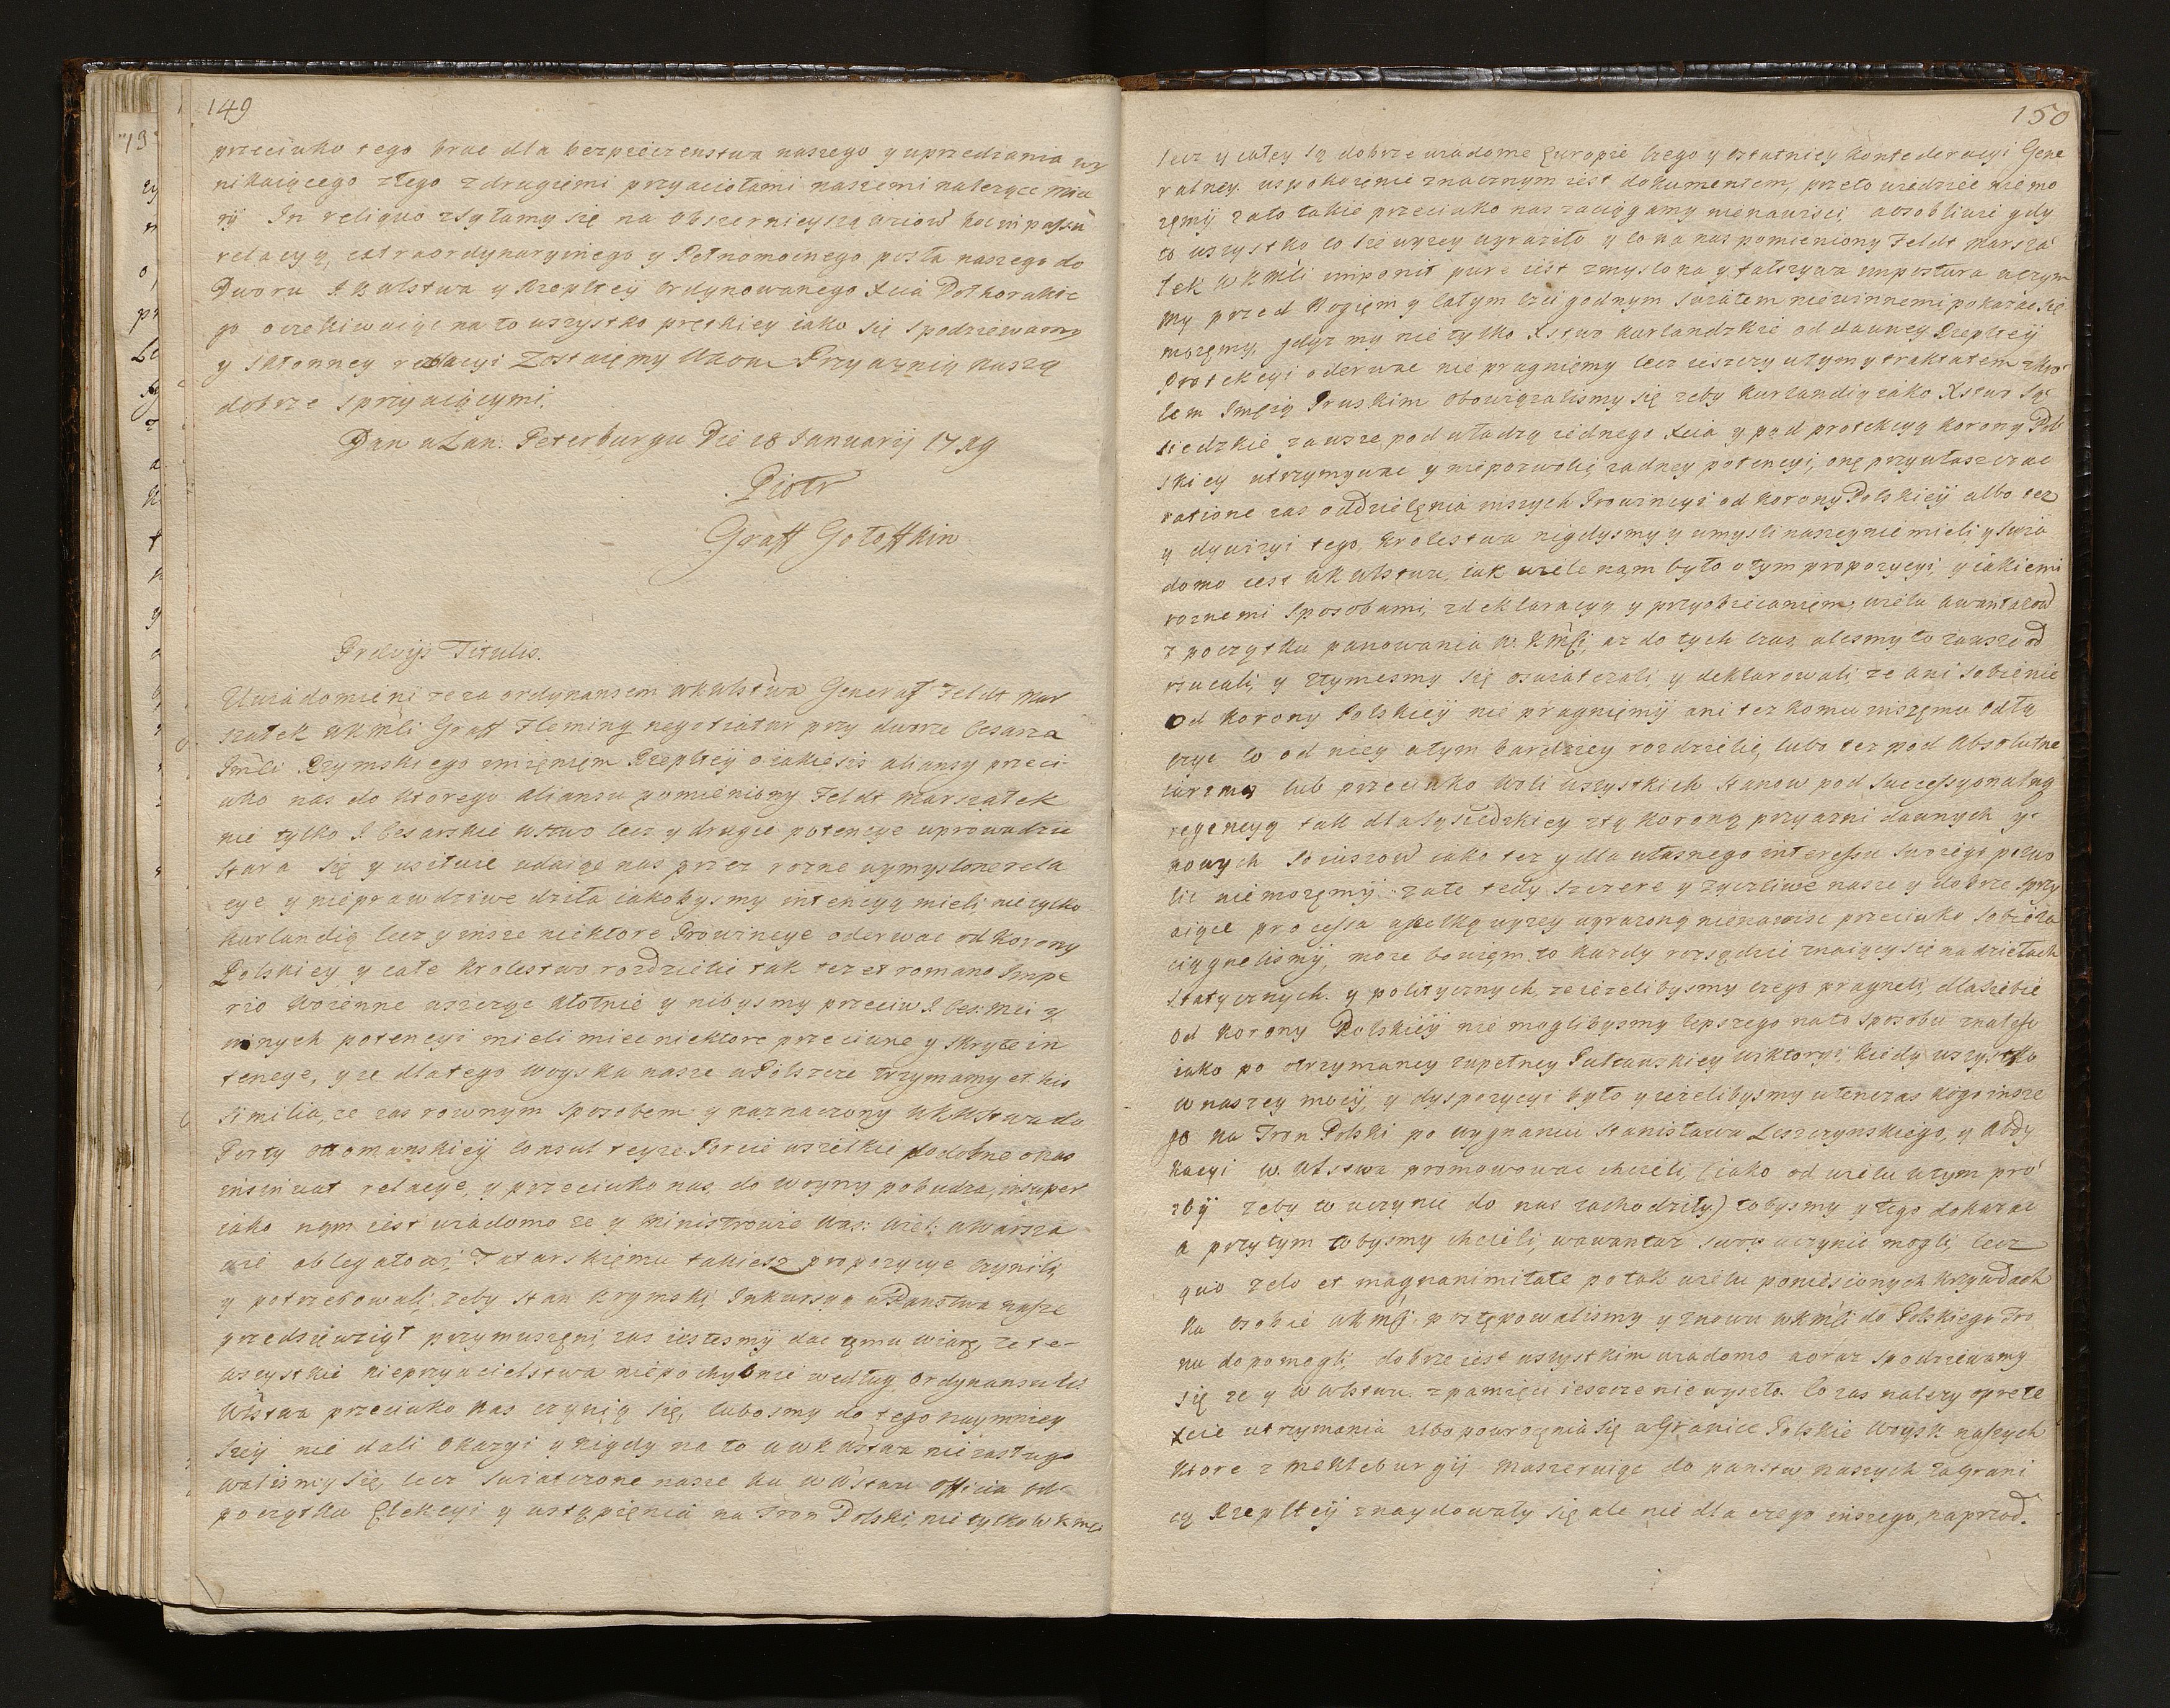 149
przeciwko tego brac dla bezpieczenstwa naszego y uprzedzania wy
nikaiącego złego z drugiemi przyaciołami naszemi nalezyce miu
ry In reliquo zsyłamy się na obszernieyszą wtow hoc in passu
relacyą, extraordynaryinego y Pełnomocnego posła naszego do
Dworu Kulstwa y Rzepltey ordynowanego Xcia Dołhorukie
go oczekiwaiąc na to wszystko prętkiey iako się spodziewamy
y skłonney rezolucyi Zostaięmy Wam Przyaznią naszą
dobrze sprzyaiącymi.
Dan w San: Peterburgu Die 28 Januarij 1719
Piotr
Graff Gołoffkin
Prævijs Titulis.
Uwiadomieni ze za ordynansem wkulstwa Generał Feldt Mar
szałek wkmsci Graff Fleming negotiatur przy dworze Cesarza
Jmsci Rzymskiego imięnięm Rzepltey o iakięsis aliansy przeci
wko nas do ktorego aliansu pomieniony Feldt Marszałek
nie tylko I Cesarskie wstwo lecz y drugie potencye uprowadzic
stara się y usiłuie udaiąc nas przez rozne wymyslone rela
cye y nieprawdziwe dziła iakobysmy intencyą mieli nie tylko
Kurlandią lecz y insze niektore Prowincye oderwac od Korony
Polskiey y całe Krolestwo rozdzielic tak tez et romano Impe
rio Woienne wszcząc kłotnie y nibysmy przeciw I Ces: Mci y
innych potencyi mieli miec niektore przeciwne y skryte in
tencye, y ze dlatego woyska nasze w Polszcze trzymamy et his
similia, ze zas rownym sposobem y naznaczony wkulstwa do
Porty ottomanskiey Consul teyze Porcie wszelkie podobne okaz
insinuat relacye, y przeciwko nas do woyny pobudza, insuper
iako nąm iest wiadomo ze y Ministrowie Was: Wiel: w Warsza
wie oblegatowi Tatarskięmu takiesz propozycye czynili
y potrzebowali zeby Han Krymski Inkursyą w Panstwa nasze
przedsięwziął przymuszęni zas iestesmy dac tęmu wiarę, ze te
wszystkie nieprzyacielstwa niepochybnie według ordynansu W
wstwa przeciwko nas czynią się, lubosmy do tego naymniey
szey nie dali okazyi y nigdy na to u wk wstwa nie zasługo
walismy się, lecz swiatczone nasze ku w wstwu officia od
początku Elekcyi y wstąpięnia na Tron Polski, nie tylko w k msci
150
lecz y całey są dobrze wiadome Europie czego y ostatniey Konfederacyi Gene
ralney uspokoięnie znacznym iest dokumentem, przeto wiedziec nie mo
zęmy za to takie przeciwko nas zaciągamy nienawisci, a osobliwie gdy
to wszystko co się wyzey wyraziło y co na nas pomieniony Feldt Marsza
łek w kmsci imponit pure iest zmyslona y fałszywa impostura w czym
my przed Bogięm y całym czci godnym swiatem niewinnemi pokazac się
mozęmy, gdyz my nie tylko Xstwo Kurlandzkie od dawney Rzepltey
Protekcyi oderwac nie pragnięmy lecz ieszczy w tym y traktatem z Kro
lem Jmcią Pruskim obowiązalismy się zeby Kurlandią iako Xstwo są
siedzkie zawsze, pod władzą iednego Xcia y pod protekcyą Korony Pol
skiey utrzymywac y nie pozwolić zadney potencyi, onę przywłaszczac
ratione zas oddzielęnia inszych Prowincyi od Korony Polskiey albo tez
y dywizyi tego Krolestwa nigdysmy y w mysli naszey nie mieli y swia
domo iest w k wlstwu, iak wiele nąm było o tym propozycyi, y iakiemi
roznemi sposobami, z deklaracyą y przyobiecanięm, wielu awantazow
z początku panowania w. k msci, az do tych czas, alesmy to zawsze od
rzucali, y z tymesmy się oswiatczali, y deklarowali, ze ani sobie nic
od Korony Polskiey nie pragnięmy ani tez komu inszęmu odłą
czyc co od niey a tym bardziey rozdzielic, lubo tez pod absolutne
iarzmo lub przeciwko woli wszystkich Stanow pod Successyonalną
regencyą tak dla sąsiedzkiey z tą koroną przyazni dawnych y
nowych soiuszow iako tez y dla własnego interessu swoiego pozwo
lic nie mozęmy: zate tedy szczere y zyczliwe nasze y dobrze sprzy
aiące processa wszelką wyzey wyrazoną nienawisc przeciwko sobie za
ciągnelismy, moze bowięm to kazdy rozsędzic znaiący się na dziełach
statycznych y politycznych, ze iezelibysmy czego pragneli, dla siebie
od Korony Polskiey nie moglibysmy lepszego na to sposobu znalesc
iako po otrzymaney zupełney Pułtawskiey Wiktoryi, kiedy wszystko
w naszey mocy, y dyspozycyi było y iezelibysmy wtenczas kogo insze
go na Tron Polski po wygnaniu Stanisława Leszczynskiego, y Abdy
kacyi w. wlstwa promowowac chcieli, (iako od wielu w tym pro
zby zeby to uczynic do nas zachodziły) tobysmy y tego dokazac
a przytym cobysmy chcieli, wawantaz swoy uczynic mogli, lecz
quo zelo et magnanimitate po tak wielu poniesionych krzywdach
ku osobie wkmsci postępowalismy y znowu wkmsci do Polskiego Tro
nu dopomogli, dobrze iest wszystkim wiadomo a oraz spodziewamy
się ze y w wlstwu z pamięci ieszcze nie wyszło. Co zas nalezy oprete
xcie utrzymania albo powrocęnia się w Granice Polskie Woysk naszych
ktore z Mekleburgij maszeruiąc do panstw naszych za Grani
cą Rzepltey znaydowały się ale nie dla czego inszego, naprzod.